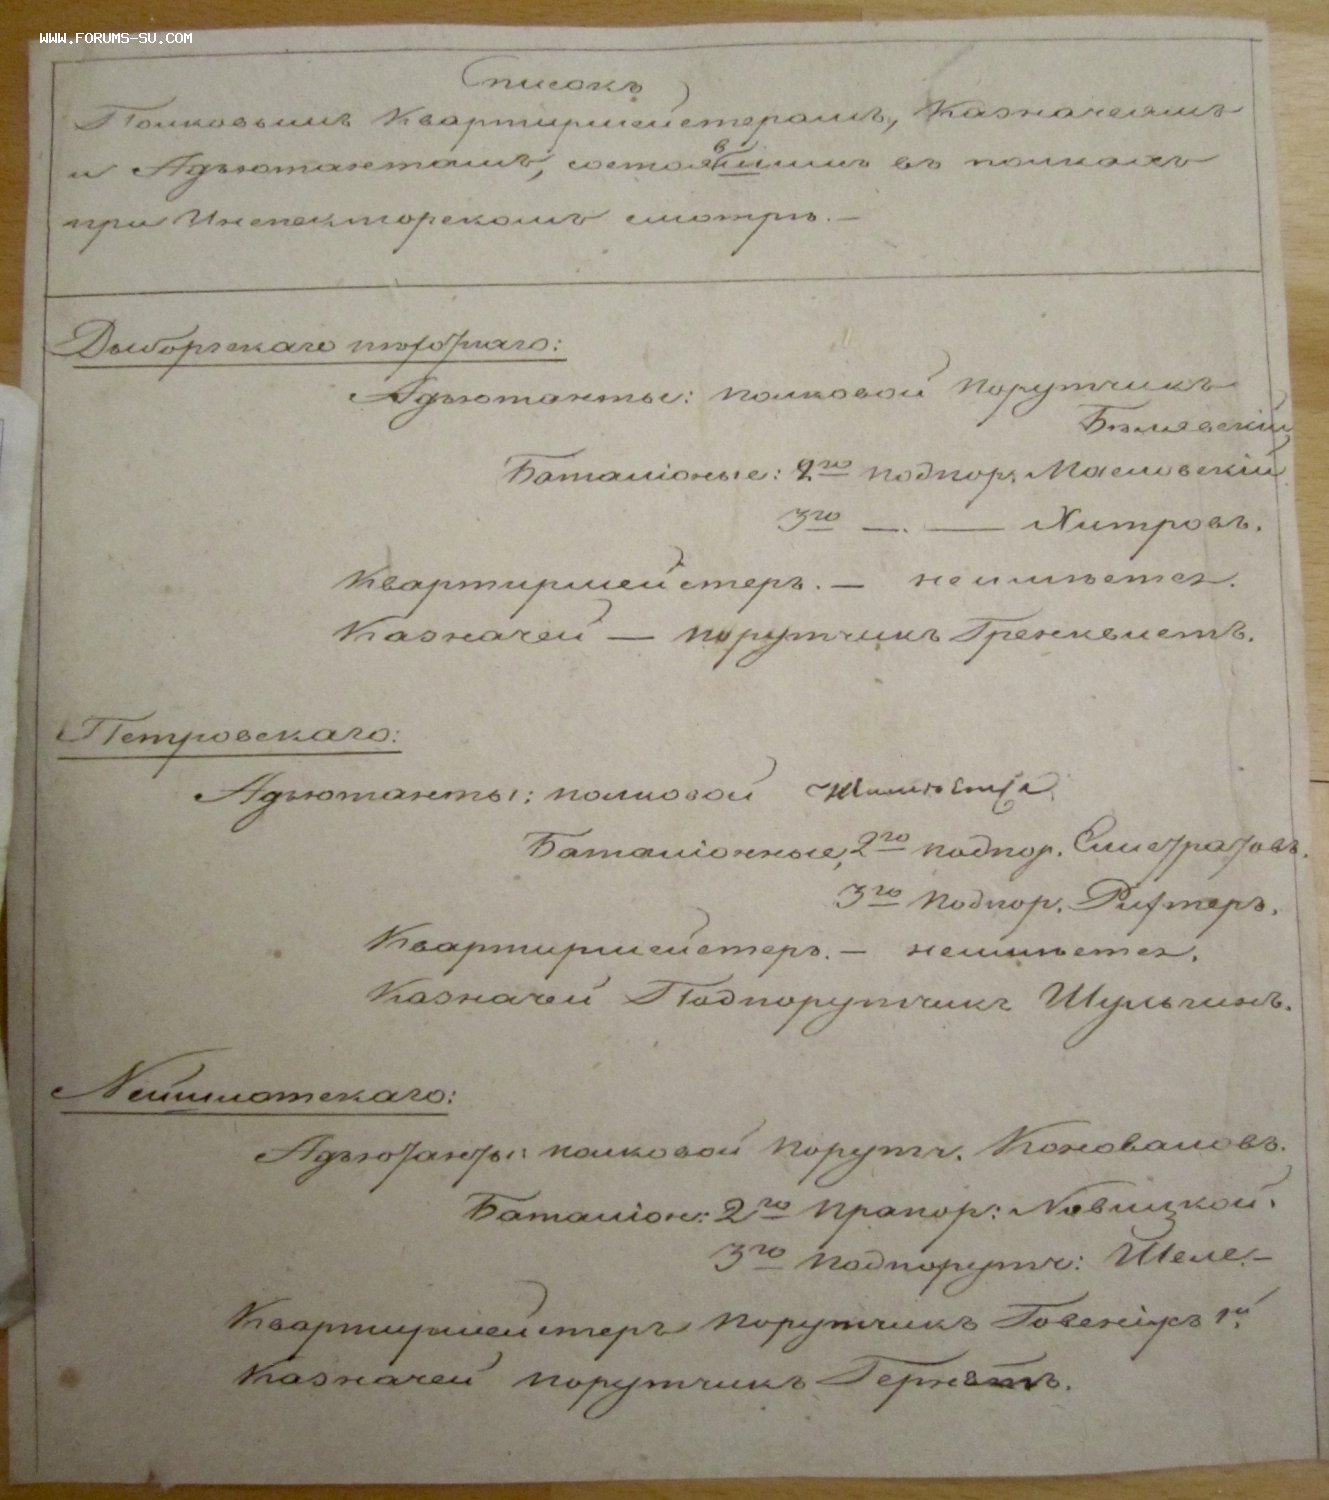 WWW.FORUMS-SU.COM
Списокъ
Полковымъ Квартирмейстерамъ, Казначеямъ
и Адъютантамъ, состоявшимъ въ полкахъ
при Инспекторскомъ смотрѣ. —
Выборгскаго пѣхотнаго:
Адъютанты: полковой Порутчикъ
Бѣлявскій
Баталіоные: 2го подпор. Масловскій
3го —. — Хитровъ.
Квартирмейстеръ. — неимѣетея.
Казначей — порутчикъ Гренквистъ.
Петровскаго:
Адъютанты: полковой
Баталіонные, 2го подпор. Елистратовъ.
3го подпор. Рихтеръ.
Квартирмейстеръ. — неимѣетея.
Казначей Подпорутчикъ Шульгинъ.
Нейшлотскаго:
Адъютанты: полковой порутч. Коноваловъ.
Баталіон: 2го прапор: Новицкой.
3го подпорутч: Шеле. —
Квартирмейстеръ порутчикъ Говеніусъ 1й.
Казначей порутчикъ Гернетъ.